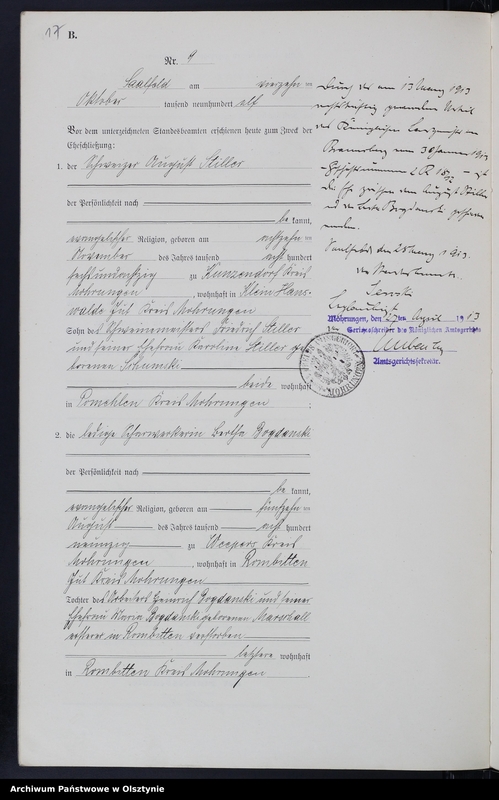 17 B.
Nr. 9
Saalfeld am vierzehnten
Oktober tausend neunhundert elf
Vor dem unterzeichneten Standesbeamten erschienen heute zum Zweck der
Eheschließung:
1. der Schweizer August Stiller
der Persönlichkeit nach
be kannt,
evangelischer Religion, geboren am achtzehnten
November des Jahres tausend acht hundert
sechsundachtzig zu Kunzendorf Kreis
Mohrungen, wohnhaft in Klein Hans-
walde Gut Kreis Mohrungen
Sohn des Schweinemeisters Friedrich Stiller
und seiner Ehefrau Karoline Stiller ge-
borenen
beide wohnhaft
in Pomehlen Kreis Mohrungen;
2. die ledige Scharwerkerin Bertha Bogdanski
der Persönlichkeit nach
be kannt,
evangelischer Religion, geboren am fünfzehnten
August des Jahres tausend acht hundert
neunzig zu Weepers Kreis
Mohrungen, wohnhaft in Rombitten
Gut Kreis Mohrungen
Tochter des Arbeiters Heinrich Bogdanski und seiner
Ehefrau Maria Bogdanski geborenen Marschall
ersterer in Rombitten verstorben
letztere wohnhaft
in Rombitten Kreis Mohrungen.
Durch das am 13 März 1913
rechtskräftig gewordene Urteil
des Königlichen Landgerichts in
Braunsberg vom 30 Januar 1913
ist
die Ehe zwischen dem August Stiller
und der Bertha Bogdanski geschieden
worden.
Saalfeld den 28 März 1913.
Der Standesbeamte.
Beglaubigt
Mohrungen, den 27ten April 1913
Gerichtsschreiber des Königlichen Amtsgerichts
Amtsgerichtssekretär.
Archiwum Państwowe w Olsztynie